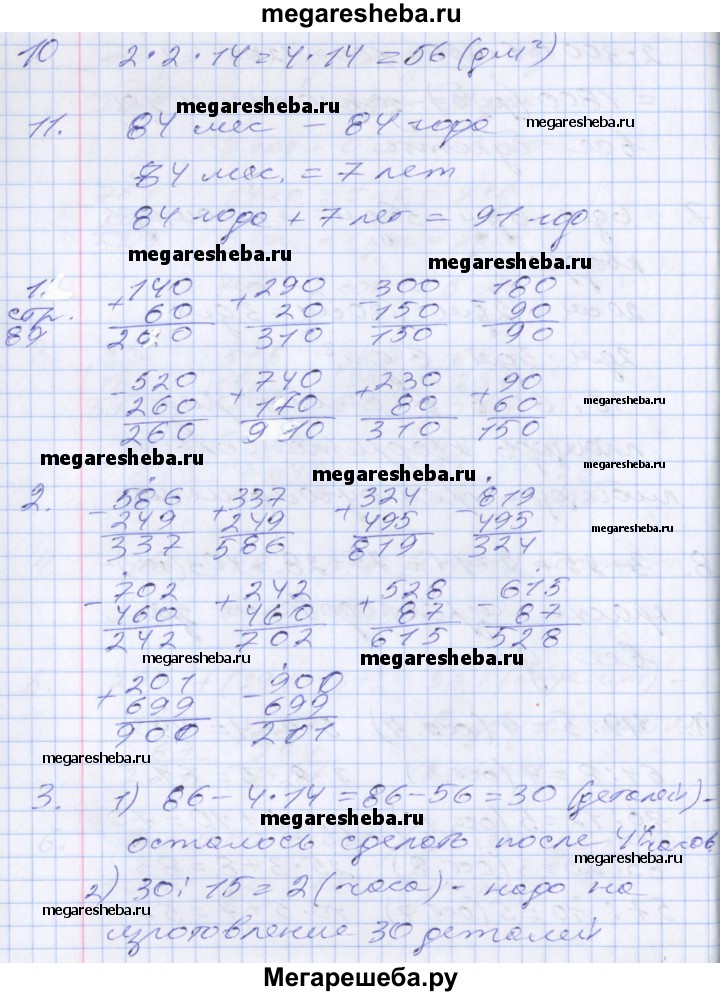 megaresheba.ru
10 2·2·14=4·14=56(дм²)
megaresheba.ru
11. 84 мес – 84 года
megaresheba.ru
84 мес. = 7 лет
84 года + 7 лет = 91 год
megaresheba.ru megaresheba.ru
1. +140 +290 -300 -180
стр. 60 20 150 90
84 200 310 150 90
-520 +740 +230 +90
260 170 80 60 megaresheba.ru
260 910 310 150
megaresheba.ru megaresheba.ru megaresheba.ru
2. -586 +337 +324 -819
249 249 495 495 megaresheba.ru
337 586 819 324
-702 +242 +528 -615
460 460 87 87
242 702 615 528
megaresheba.ru megaresheba.ru
+201 -900
699 699
900 201
megaresheba.ru
3. 1) 86-4·14=86-56=30 (деталей)-
megaresheba.ru
осталось сделать после 4 часов
megaresheba.ru
2) 30:15=2(часа)- надо на
megaresheba.ru megaresheba.ru
изготовление 30 деталей
Мегарешеба.ру